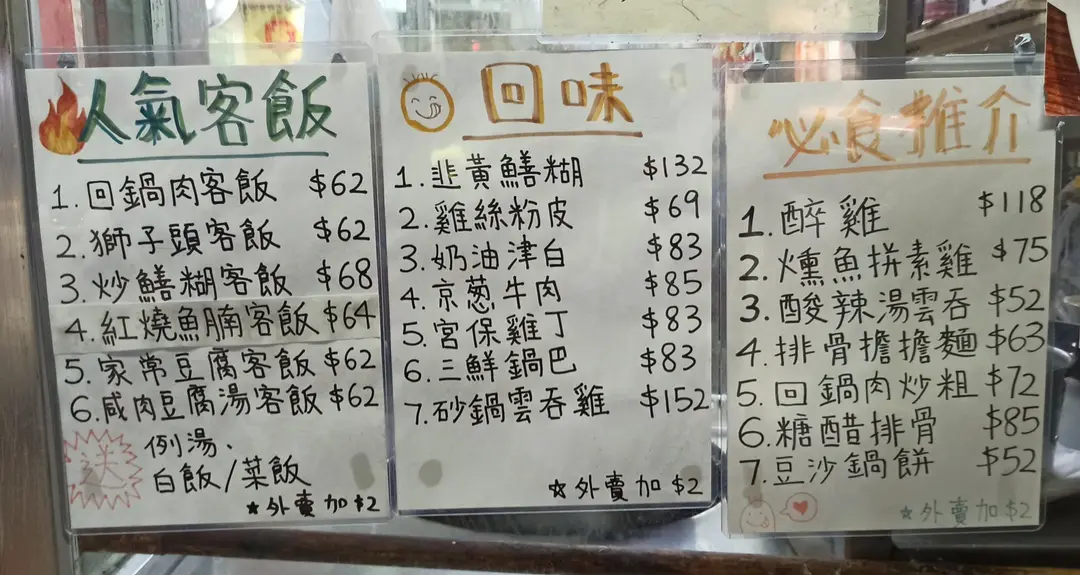 人氣客飯
1. 回鍋肉客飯 $62
2. 獅子頭客飯 $62
3. 炒鱔糊客飯 $68
4. 紅燒魚腩客飯 $64
5. 家常豆腐客飯 $62
6. 咸肉豆腐湯客飯 $62
送
例湯、
白飯/菜飯
☆外賣加$2
回味
1. 韭黃鱔糊 $132
2. 雞絲粉皮 $69
3. 奶油津白 $83
4. 京葱牛肉 $85
5. 宮保雞丁 $83
6. 三鮮鍋巴 $83
7. 砂鍋雲吞雞 $152
☆外賣加$2
必食推介
1. 醉雞 $118
2. 燻魚拼素雞 $75
3. 酸辣湯雲吞 $52
4. 排骨擔擔麵 $63
5. 回鍋肉炒粗 $72
6. 糖醋排骨 $85
7. 豆沙鍋餅 $52
☆外賣加$2